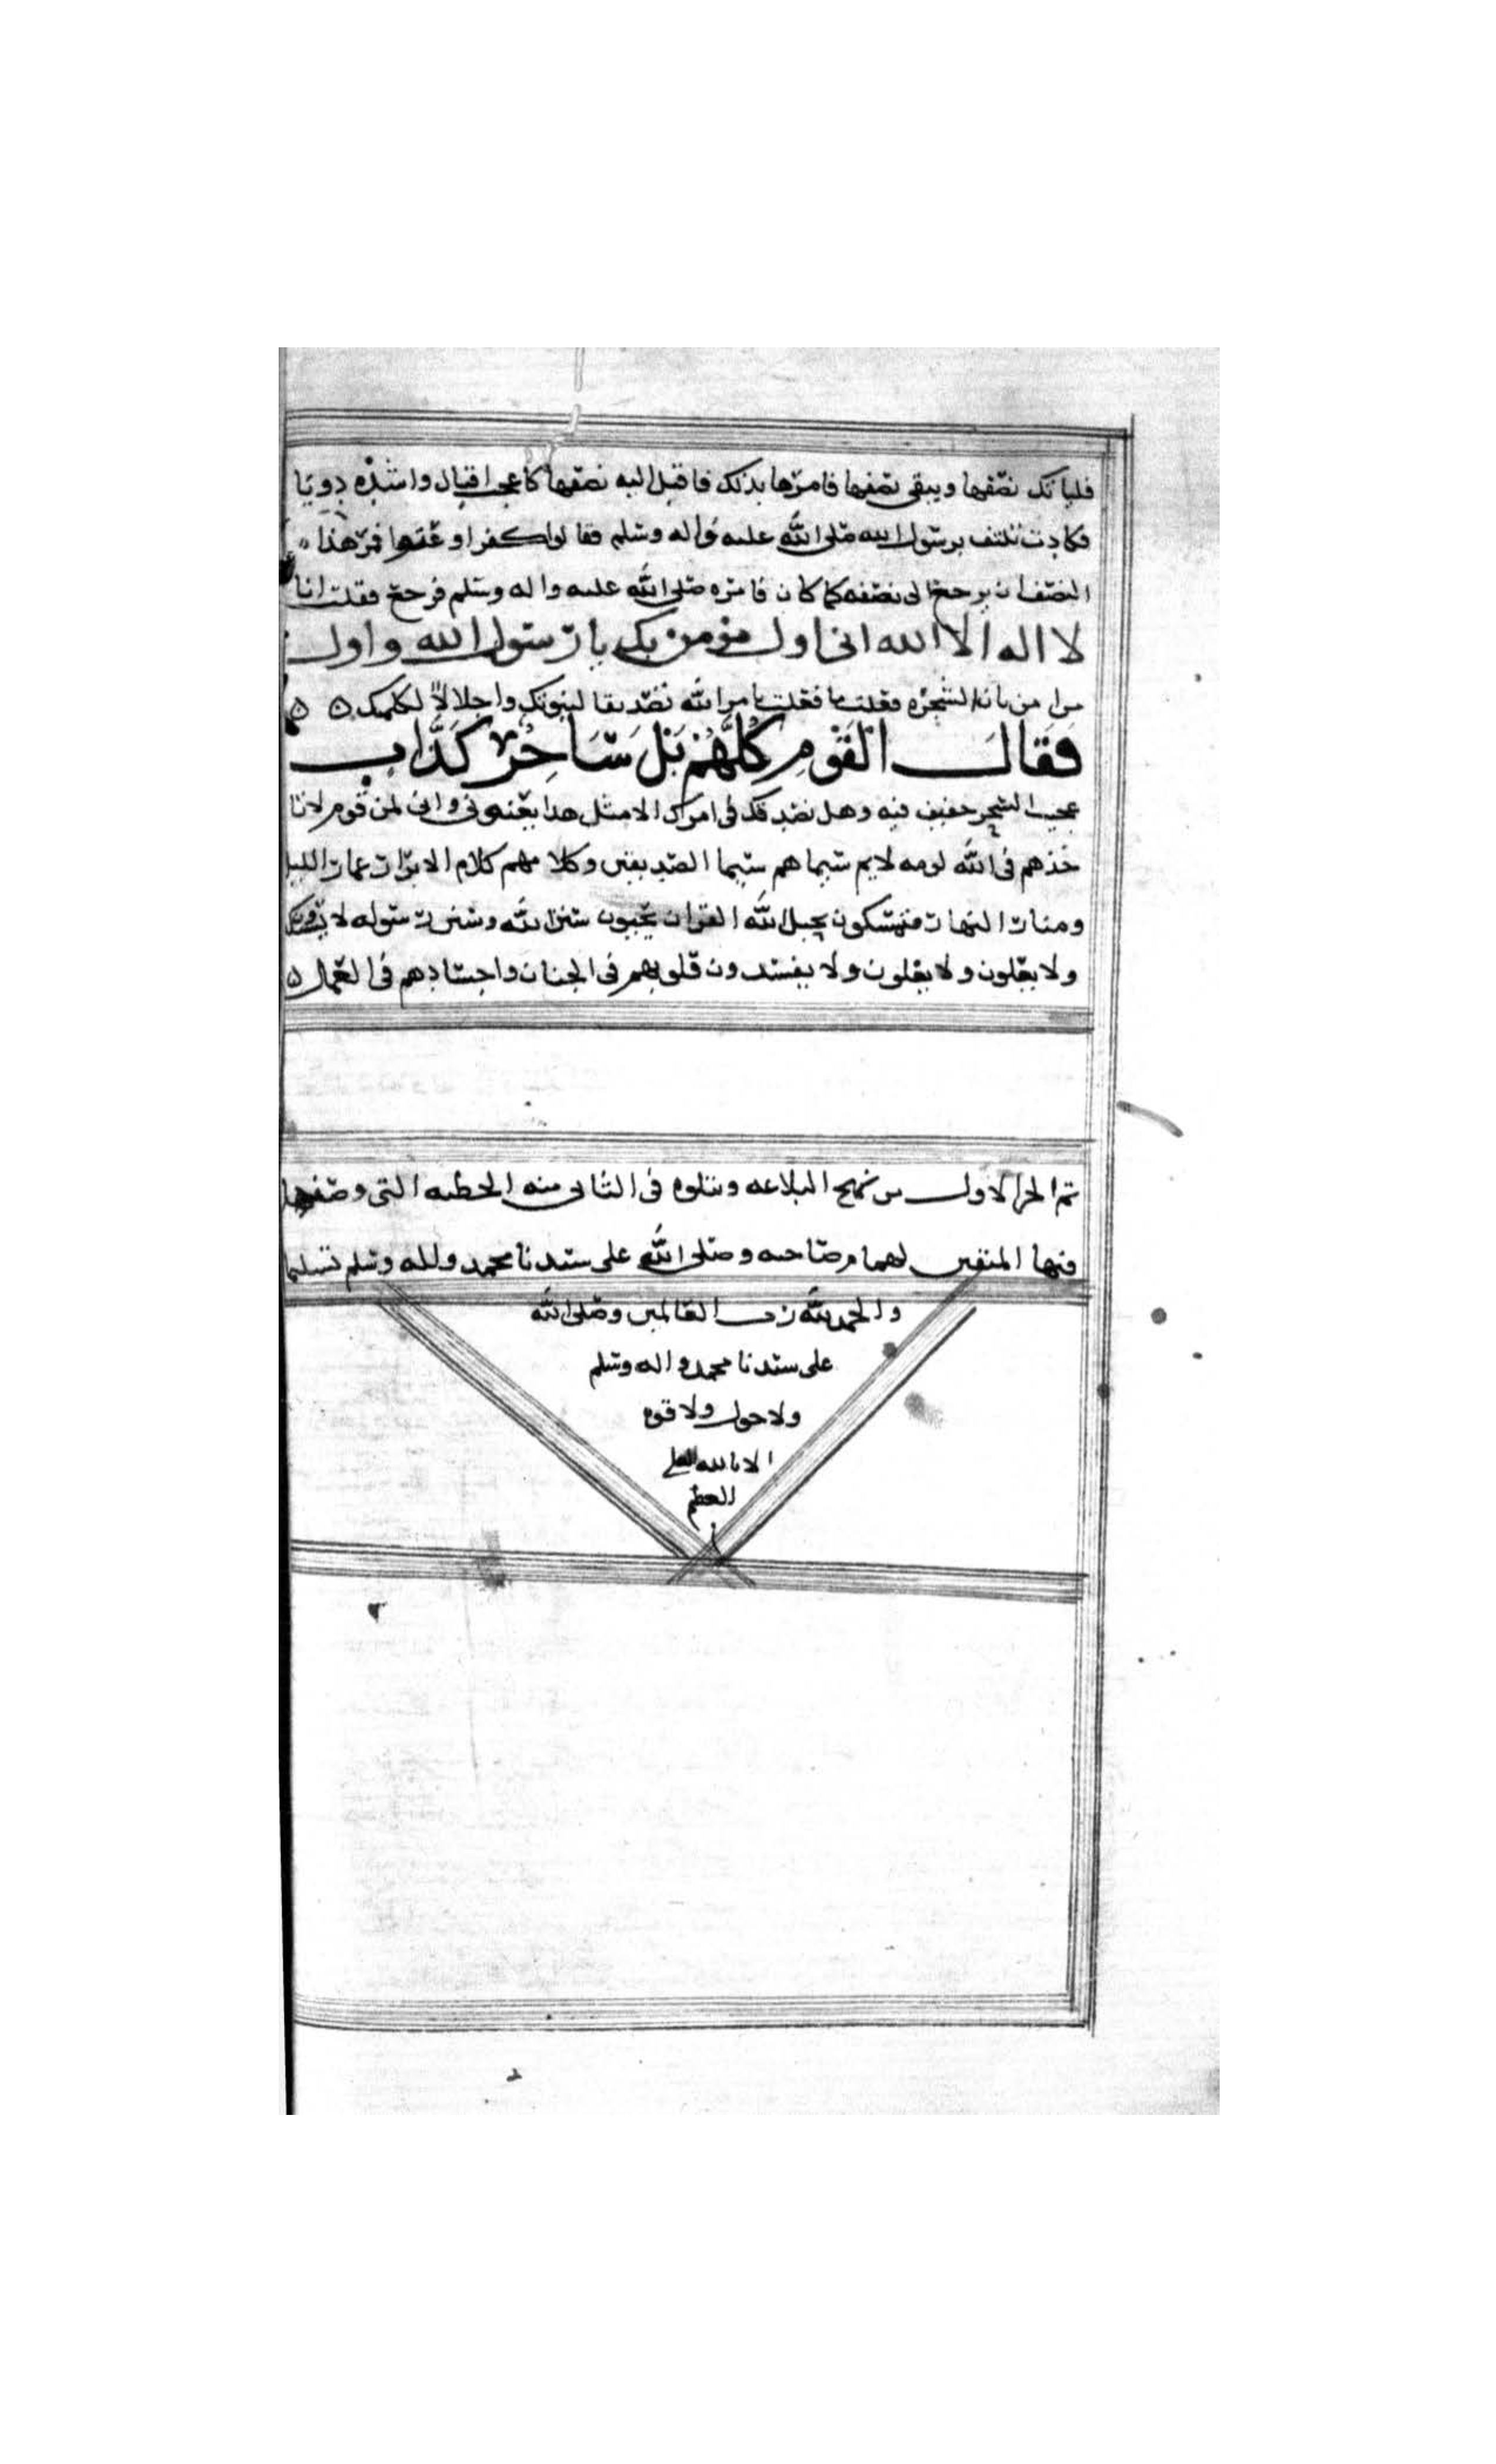 فلياتك نصفها ويبقى نصفها فامرها بذلك فاقبل اليه نصفها كاعجب اقبال واشده دويا
فكادت تلتف برسول الله صلى الله عليه واله وسلم فقالوا كفرا وعتوا فمر هذا
النصف ان يرجع الى نصفه كما كان فامره صلى الله عليه واله وسلم فرجع فقلت انا
لا اله الا الله انى اول مؤمن بك يا رسول الله واول
من امن بان الشجره فعلت ما فعلت بامر الله تصديقا لنبوتك واجلالا لكلمتك ۵ ۵
فَقَالَ القَوْمِ كُلُّهُمْ بَلْ سَاحِرٌ كَذَّاب
عجيب السحر خفيف فيه وهل يصدقك فى امرك الا مثل هذا يعنونى وانى لمن قوم لا تا
خذهم فى الله لومه لايم سيماهم سيما الصديقين وكلامهم كلام الابرار عمار الليل
ومنار النهار متمسكون بحبل الله القران يحيون سنن الله وسنن رسوله لا
ولا يعلون ولا يغلون ولا يفسدون قلوبهم فى الجنان واجسادهم فى العمل ۵
تم الجزا الاول من نهج البلاغه ويتلوه فى الثانى منه الخطبه التى وصف
فيها المتقين لهمام صاحبه وصلى الله على سيدنا محمد واله وسلم تسليما
والحمد لله رب العالمين وصلى الله
على سيدنا محمد واله وسلم
ولا حول ولا قوه
الا بالله العلى
العظيم